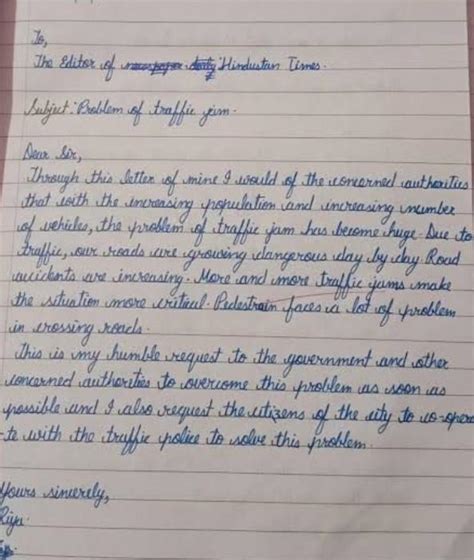 To,
The Editor of Hindustan Times.
Subject: Problem of traffic jam.
Dear Sir,
Through this letter of mine I would of the concerned authorities
that with the increasing population and increasing number
of vehicles, the problem of traffic jam has become huge. Due to
traffic, our roads are growing dangerous day by day. Road
accidents are increasing. More and more traffic jams make
the situation more critical. Pedestrain faces a lot of problem
in crossing roads.
This is my humble request to the government and other
concerned authorties to overcome this problem as soon as
possible and I also request the citizens of the city to co-opera
-te with the traffic police to solve this problem.
Yours sincerely,
Riya.